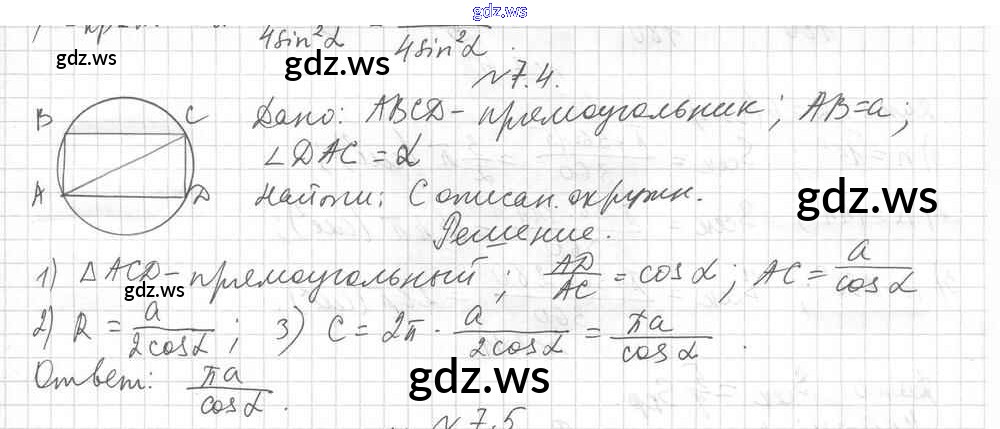 gdz.ws
4sin²α 4sin²α .
gdz.ws gdz.ws
N7.4.
B C Дано: ABCD - прямоугольник; AB=a;
∠DAC = α
A D Найти: C описан. окружн.
gdz.ws
Решение.
1) △ACD - прямоугольный; AD/AC = cos α; AC = a/cos α
gdz.ws
2) R = a/2cosα; 3) C = 2π · a/2cosα = πa/cosα.
Ответ: πa/cosα.
gdz.ws gdz.ws
N7.5